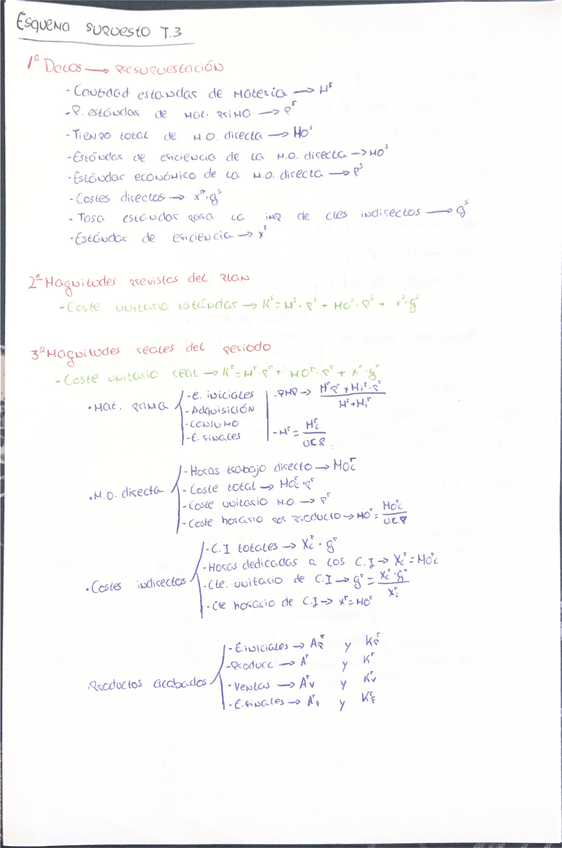 ESQUEMA SUPUESTO T.3
1º Datos → PRESUPUESTACIÓN
- Cantidad estándar de Materia → Mˢ
- P. estándar de Mat. PRIMA → Pˢ
- Tiempo total de M.O. directa → MOˢ
- Estándar de eficiencia de la M.O. directa → MOˢ
- Estándar económico de la M.O. directa → Pˢ
- Costes directos → xˢ·gˢ
- Tasa estándar para la imp. de ctes indirectos → gˢ
- Estándar de eficiencia → xˢ
2º Magnitudes previstas del Plan
- Coste unitario estándar → Kˢ = Mˢ·Pˢ + MOˢ·Pˢ + xˢ·gˢ
3º Magnitudes reales del periodo
- Coste unitario real → Kʳ = Mʳ·Pʳ + MOʳ·Pʳ + xʳ·gʳ
• Mat. PRIMA
- E. iniciales
- Adquisición
- CONSUMO
- E. finales
- PMP →
- Mʳ =
• M.O. directa
- Horas trabajo directo → MOcʳ
- Coste total → MOcʳ·Pʳ
- Coste unitario M.O. → Pʳ
- Coste horario por producto → MOʳ = MOcʳ / UEP
• Costes indirectos
- C.I totales → Xcʳ·gʳ
- Horas dedicadas a los C.I → Xcʳ = MOcʳ
- Cte. unitario de C.I → gʳ = Xcʳ·gʳ / Xcʳ
- Cte horario de C.I → xʳ = MOʳ
• Productos acabados
- E iniciales → y
- Producc → Aʳ y Kʳ
- Ventas → Avʳ y Kvʳ
- E. finales → y